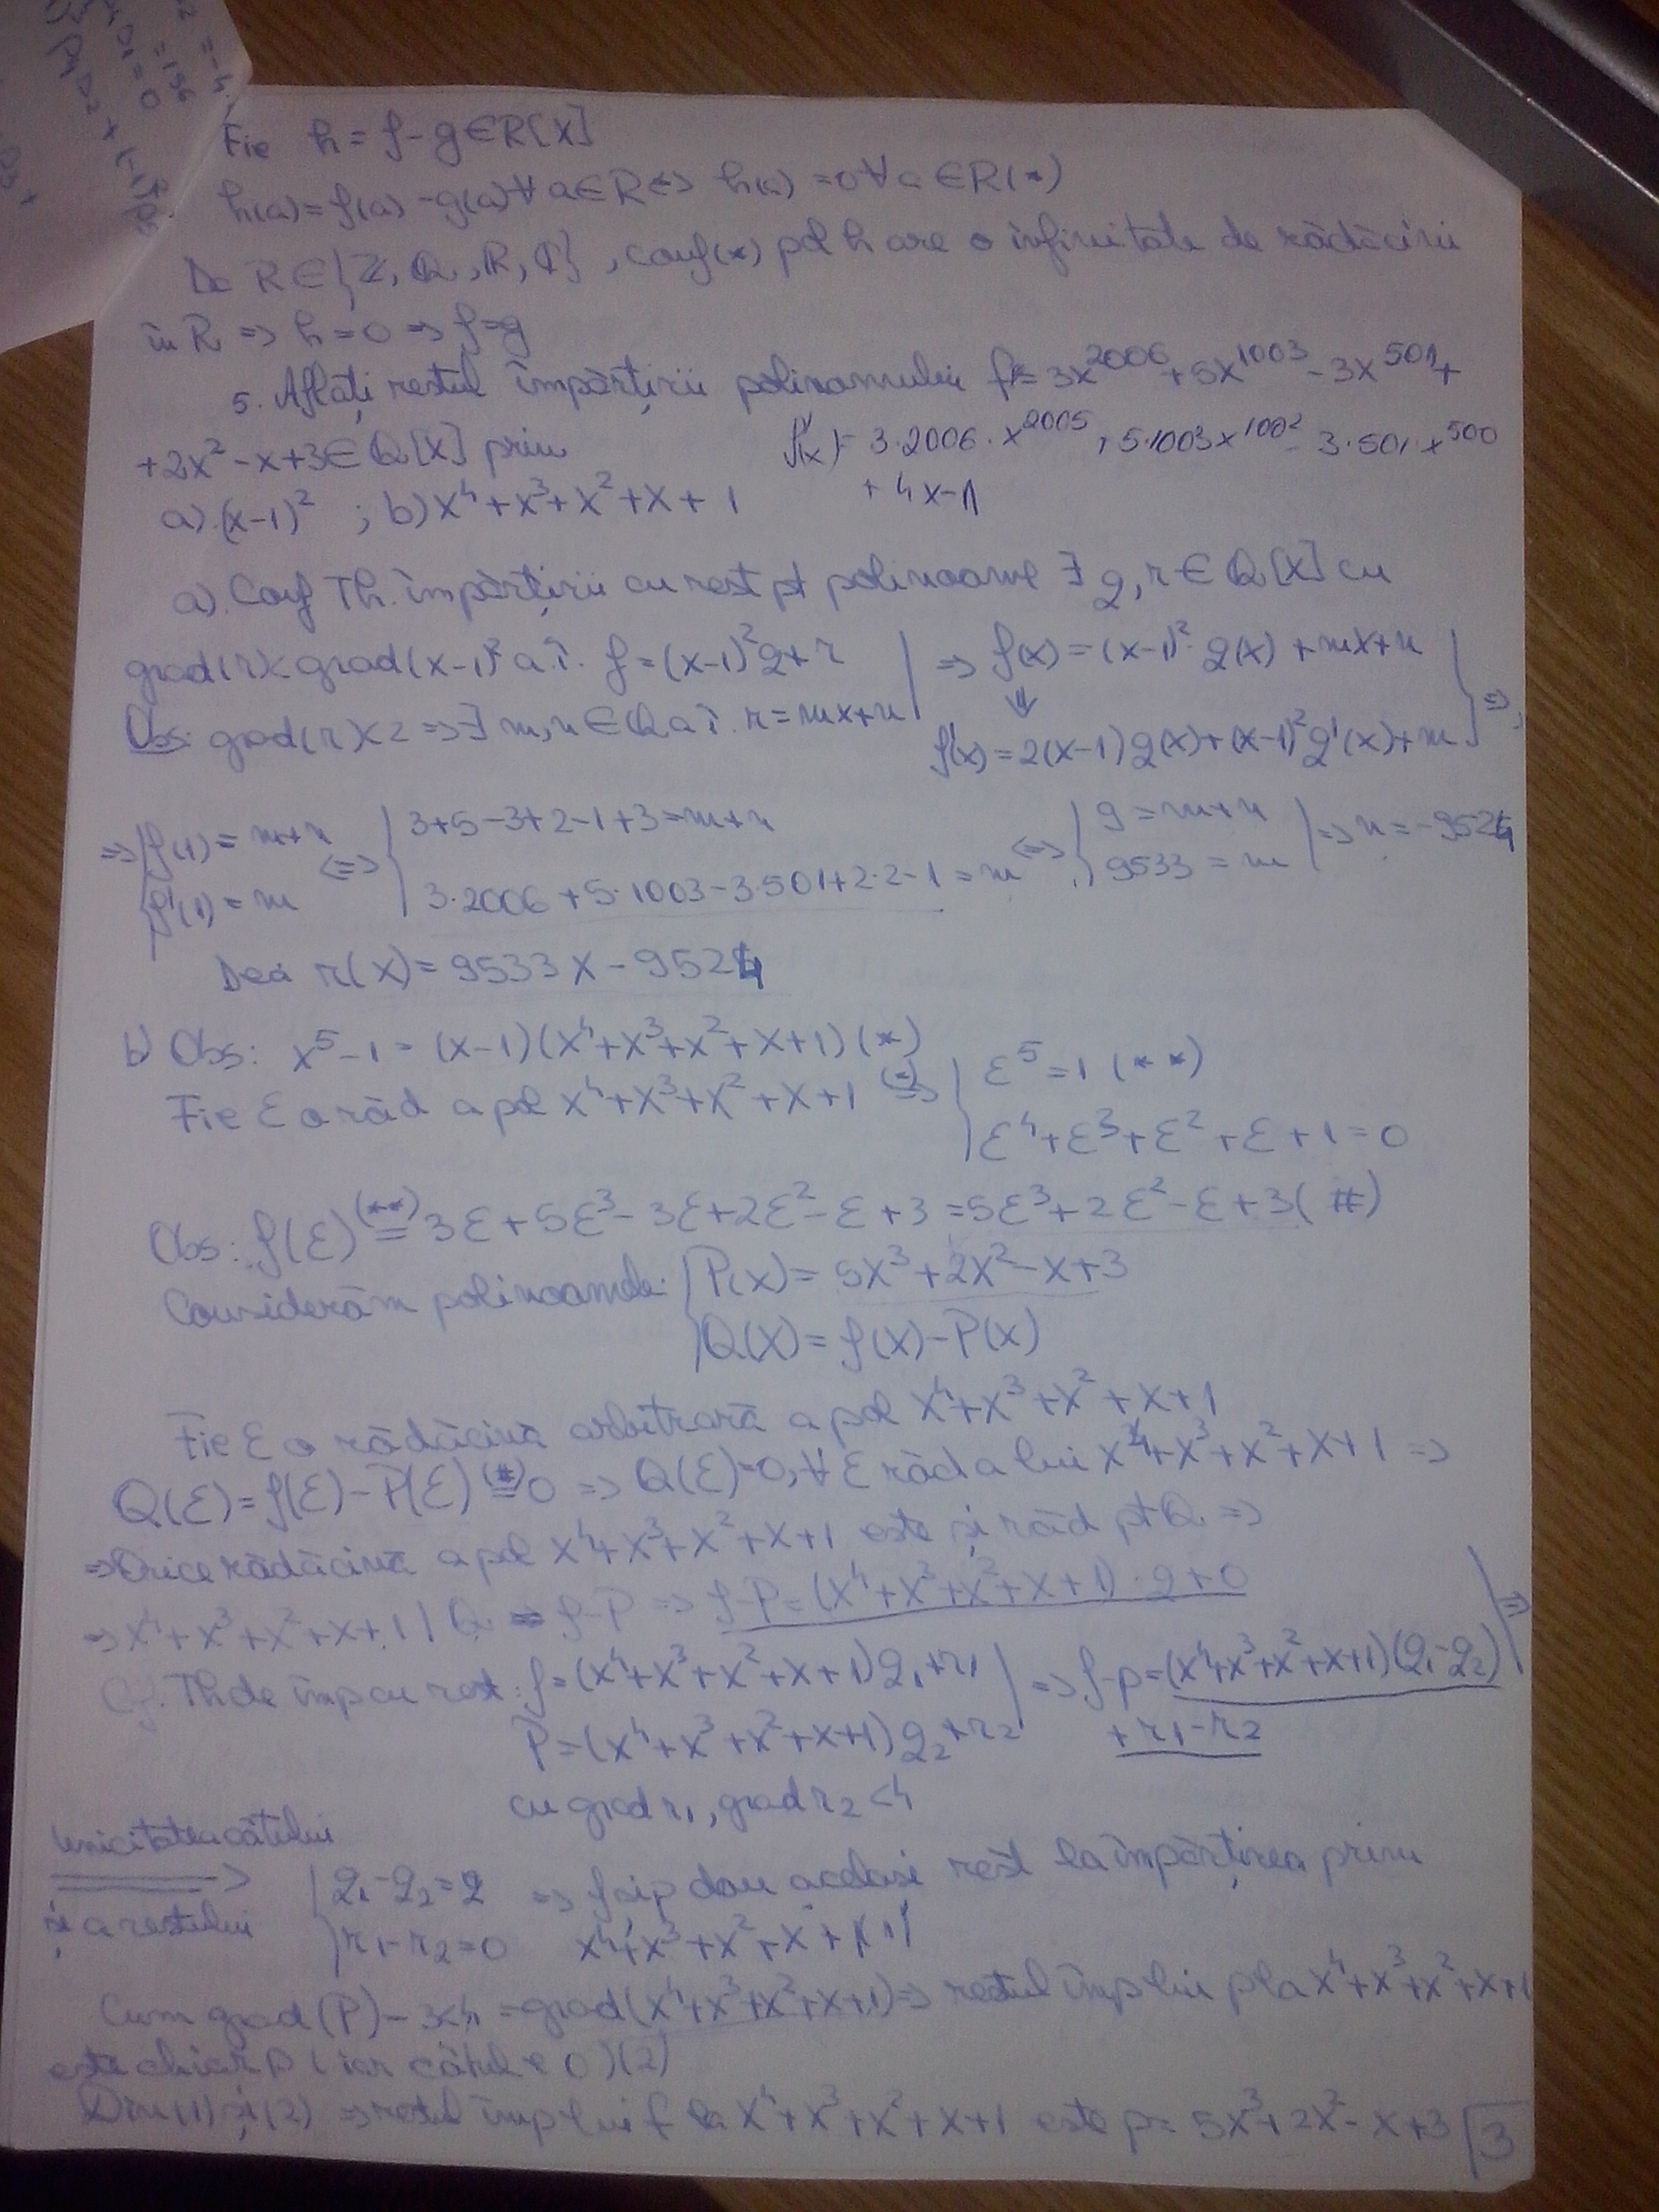 Fie h = f - g ∈ R[X]
h(a) = f(a) - g(a) ∀ a ∈ R ⇔ h(a) = 0 ∀ a ∈ R (*)
Dc R ∈ {ℤ, ℚ, ℝ, ℂ}, conf (*) pol h are o infinitate de rădăcini
în R ⇒ h = 0 ⇒ f = g
5. Aflați restul împărțirii polinomului f = 3x^2006 + 5x^1003 - 3x^501 +
+ 2x² - x + 3 ∈ ℚ[X] prin
f'(x) = 3·2006·x^2005 + 5·1003x^1002 - 3·501·x^500
+ 4x - 1
a) (x-1)² ; b) x⁴ + x³ + x² + x + 1
a). Conf Th. împărțirii cu rest pt polinoame ∃ q, r ∈ ℚ[X] cu
grad(r) < grad(x-1)² a.î. f = (x-1)²q + r | ⇒ f(x) = (x-1)²·q(x) + mx + n
Obs: grad(r) < 2 ⇒ ∃ m, n ∈ ℚ a.î. r = mx + n | ⇓ } ⇒
f'(x) = 2(x-1)q(x) + (x-1)²q'(x) + m
⇒ { f(1) = m + n ⇔ { 3+5-3+2-1+3 = m+n ⇔ { 9 = m+n | ⇒ n = -9524
f'(1) = m 3·2006 + 5·1003 - 3·501 + 2·2 - 1 = m 9533 = m
Deci r(x) = 9533x - 9524
b) Obs: x⁵ - 1 = (x-1)(x⁴ + x³ + x² + x + 1) (*)
Fie ε o răd a pol x⁴ + x³ + x² + x + 1 (*)⇒ { ε⁵ = 1 (**)
ε⁴ + ε³ + ε² + ε + 1 = 0
Obs: f(ε) (**)= 3ε + 5ε³ - 3ε + 2ε² - ε + 3 = 5ε³ + 2ε² - ε + 3 (#)
Considerăm polinoamele: { P(x) = 5x³ + 2x² - x + 3
Q(x) = f(x) - P(x)
Fie ε o rădăcină arbitrară a pol x⁴ + x³ + x² + x + 1
Q(ε) = f(ε) - P(ε) (#)= 0 ⇒ Q(ε) = 0, ∀ ε răd a lui x⁴ + x³ + x² + x + 1 ⇒
⇒ Orice rădăcină a pol x⁴ + x³ + x² + x + 1 este și răd pt Q ⇒
⇒ x⁴ + x³ + x² + x + 1 | Q = f - P ⇒ f - P = (x⁴ + x³ + x² + x + 1)·q + 0
Cf. Th de împ cu rest: f = (x⁴ + x³ + x² + x + 1)q₁ + r₁ | ⇒ f - p = (x⁴ + x³ + x² + x + 1)(q₁ - q₂) | ⇒
P = (x⁴ + x³ + x² + x + 1)q₂ + r₂ + r₁ - r₂
cu grad r₁, grad r₂ < 4
unicitatea câtului
⇒ { q₁ - q₂ = q ⇒ f și p dau același rest la împărțirea prin
și a restului r₁ - r₂ = 0 x⁴ + x³ + x² + x + 1 (1)
Cum grad(P) = 3 < 4 = grad(x⁴ + x³ + x² + x + 1) ⇒ restul împ lui p la x⁴ + x³ + x² + x + 1
este chiar p (iar câtul e 0) (2)
Din (1) și (2) ⇒ restul împ lui f la x⁴ + x³ + x² + x + 1 este p = 5x³ + 2x² - x + 3
3